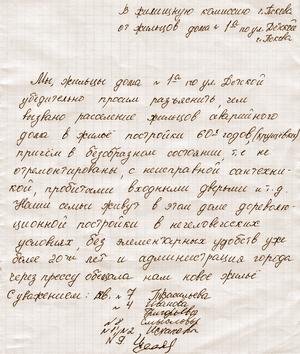 В жилищную комиссию г. Пскова
от жильцов дома № 1а по ул. Детской
г. Пскова
Мы, жильцы дома № 1а по ул. Детской
убедительно просим разъяснить, чем
вызвано расселение жильцов аварийного
дома в жильё постройки 60х годов, (хрущёвки)
причём в безобразном состоянии, т.е. не
отремонтированы, с неисправной сантехни-
кой, пробитыми входными дверьми и т.д.
Наши семьи живут в этом доме дореволю-
ционной постройки в нечеловеческих
условиях, без элементарных удобств уже
более 20ти лет и администрация города
через прессу обещала нам новое жильё
С уважением: кв. № 7 Васильева
№ 4 Иванова
Григорьева
№ 8
№ 1, № 2
№ 9